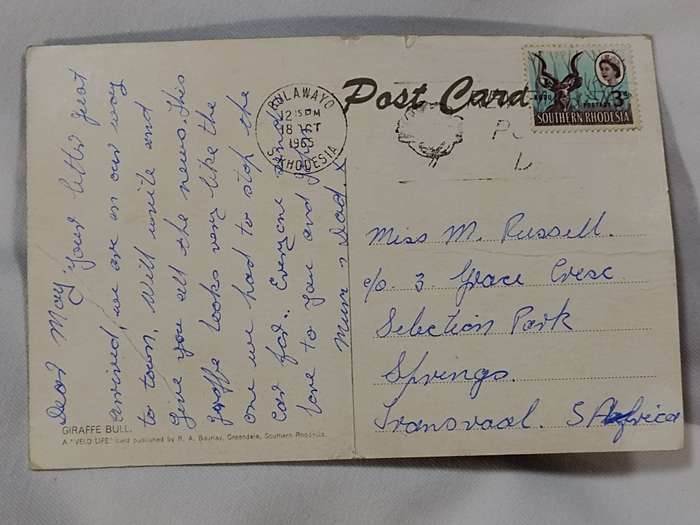 Dear May, Your letter just
arrived, we are on our way
to town. Will write and
give you all the news. This
giraffe looks very like the
one we had to stop the
car for. Everyone sends
love to you and John.
Mum & Dad. x
GIRAFFE BULL.
A "VELD LIFE" card published by R. A. Bourlay, Greendale, Southern Rhodesia.
Post Card
BULAWAYO
12 15 PM
18 OCT
S. RHODESIA
POSTAGE
3D
SOUTHERN RHODESIA
Miss M. Russell.
c/o 3 Grace Cresc
Selection Park
Springs.
Transvaal. S Africa